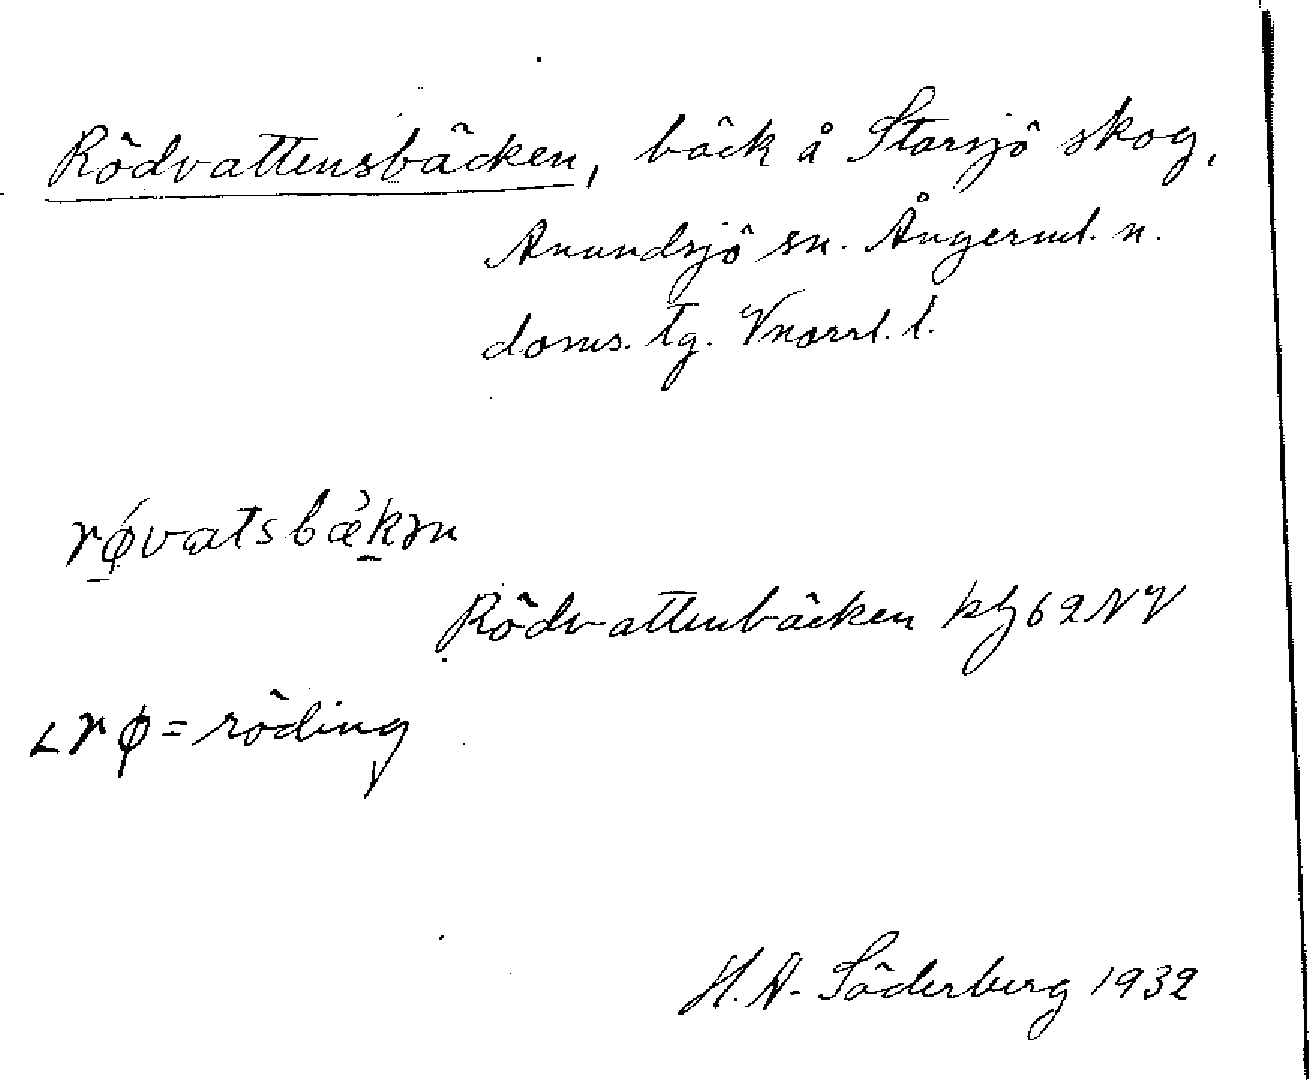 Rödvattensbäcken, bäck å Storsjö skog,
Anundsjö sn. Ångerml. n.
doms. tg. Vnorrl. l.
rǿvatsbæ̀kən
Rödvattenbäcken kbl 62 NV
< rø = röding
H. A. Söderberg 1932